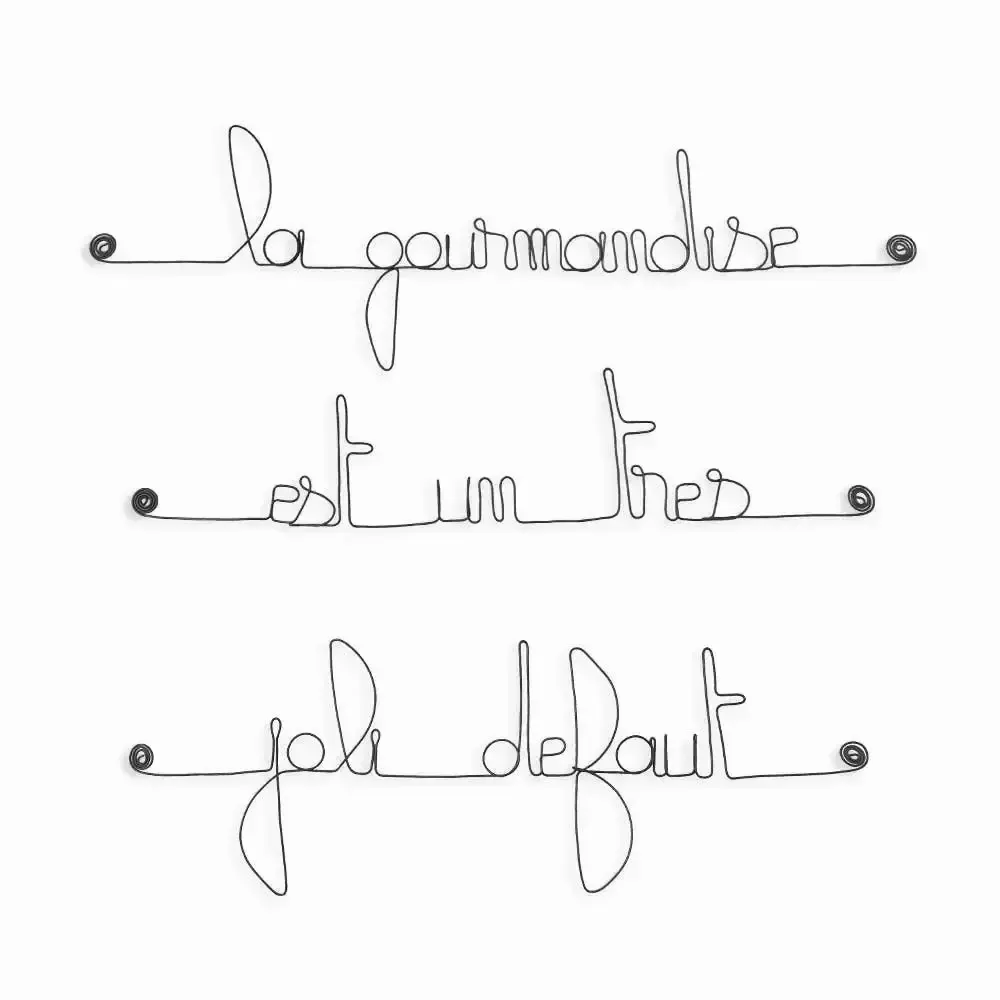 la gourmandise
est un tres
joli defaut